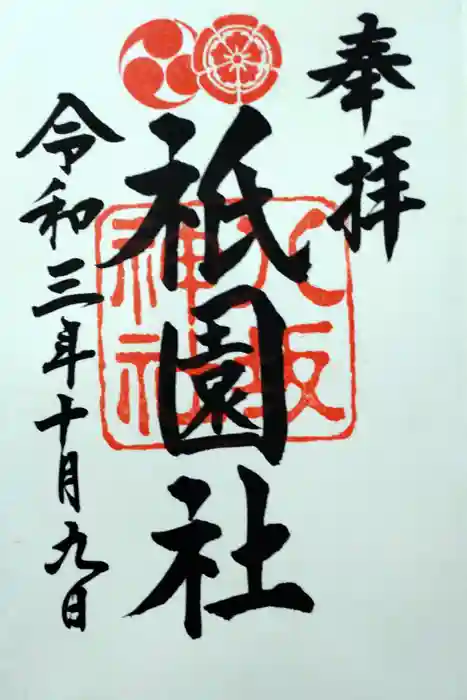 奉拝
八坂
神社
祇園社
令和三年十月九日